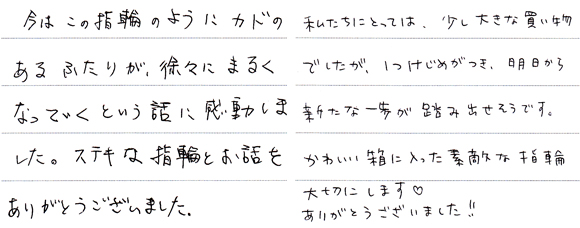 今はこの指輪のようにカドの
あるふたりが、徐々にまるく
なっていくという話に感動しま
した。ステキな指輪とお話を
ありがとうございました。
私たちにとっては、少し大きな買い物
でしたが、1つけじめがつき、明日から
新たな一歩が踏み出せそうです。
かわいい箱に入った素敵な指輪
大切にします♡
ありがとうございました!!